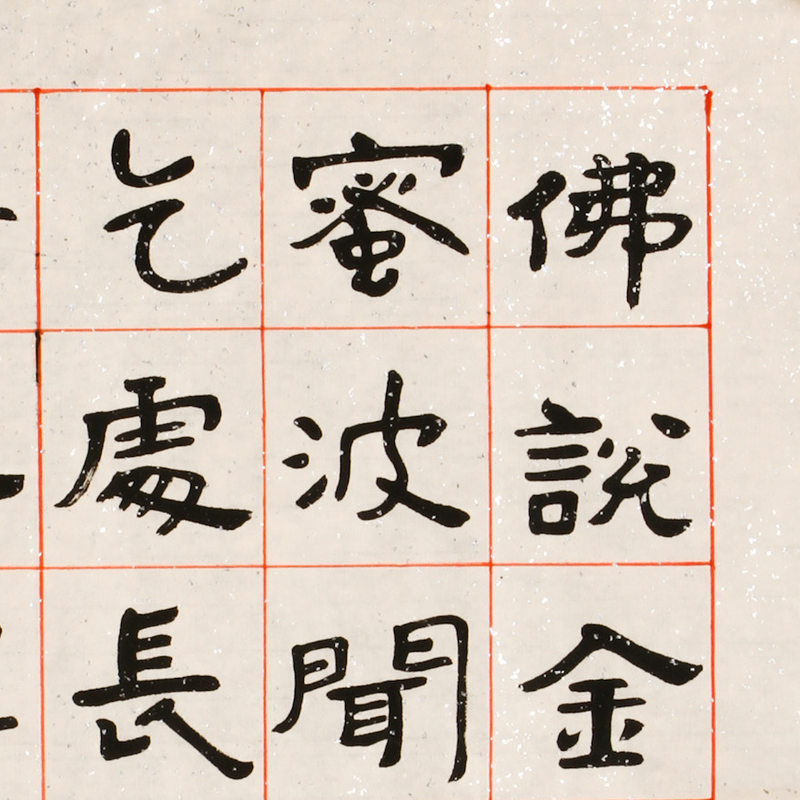 佛說金
蜜波聞
乞處長